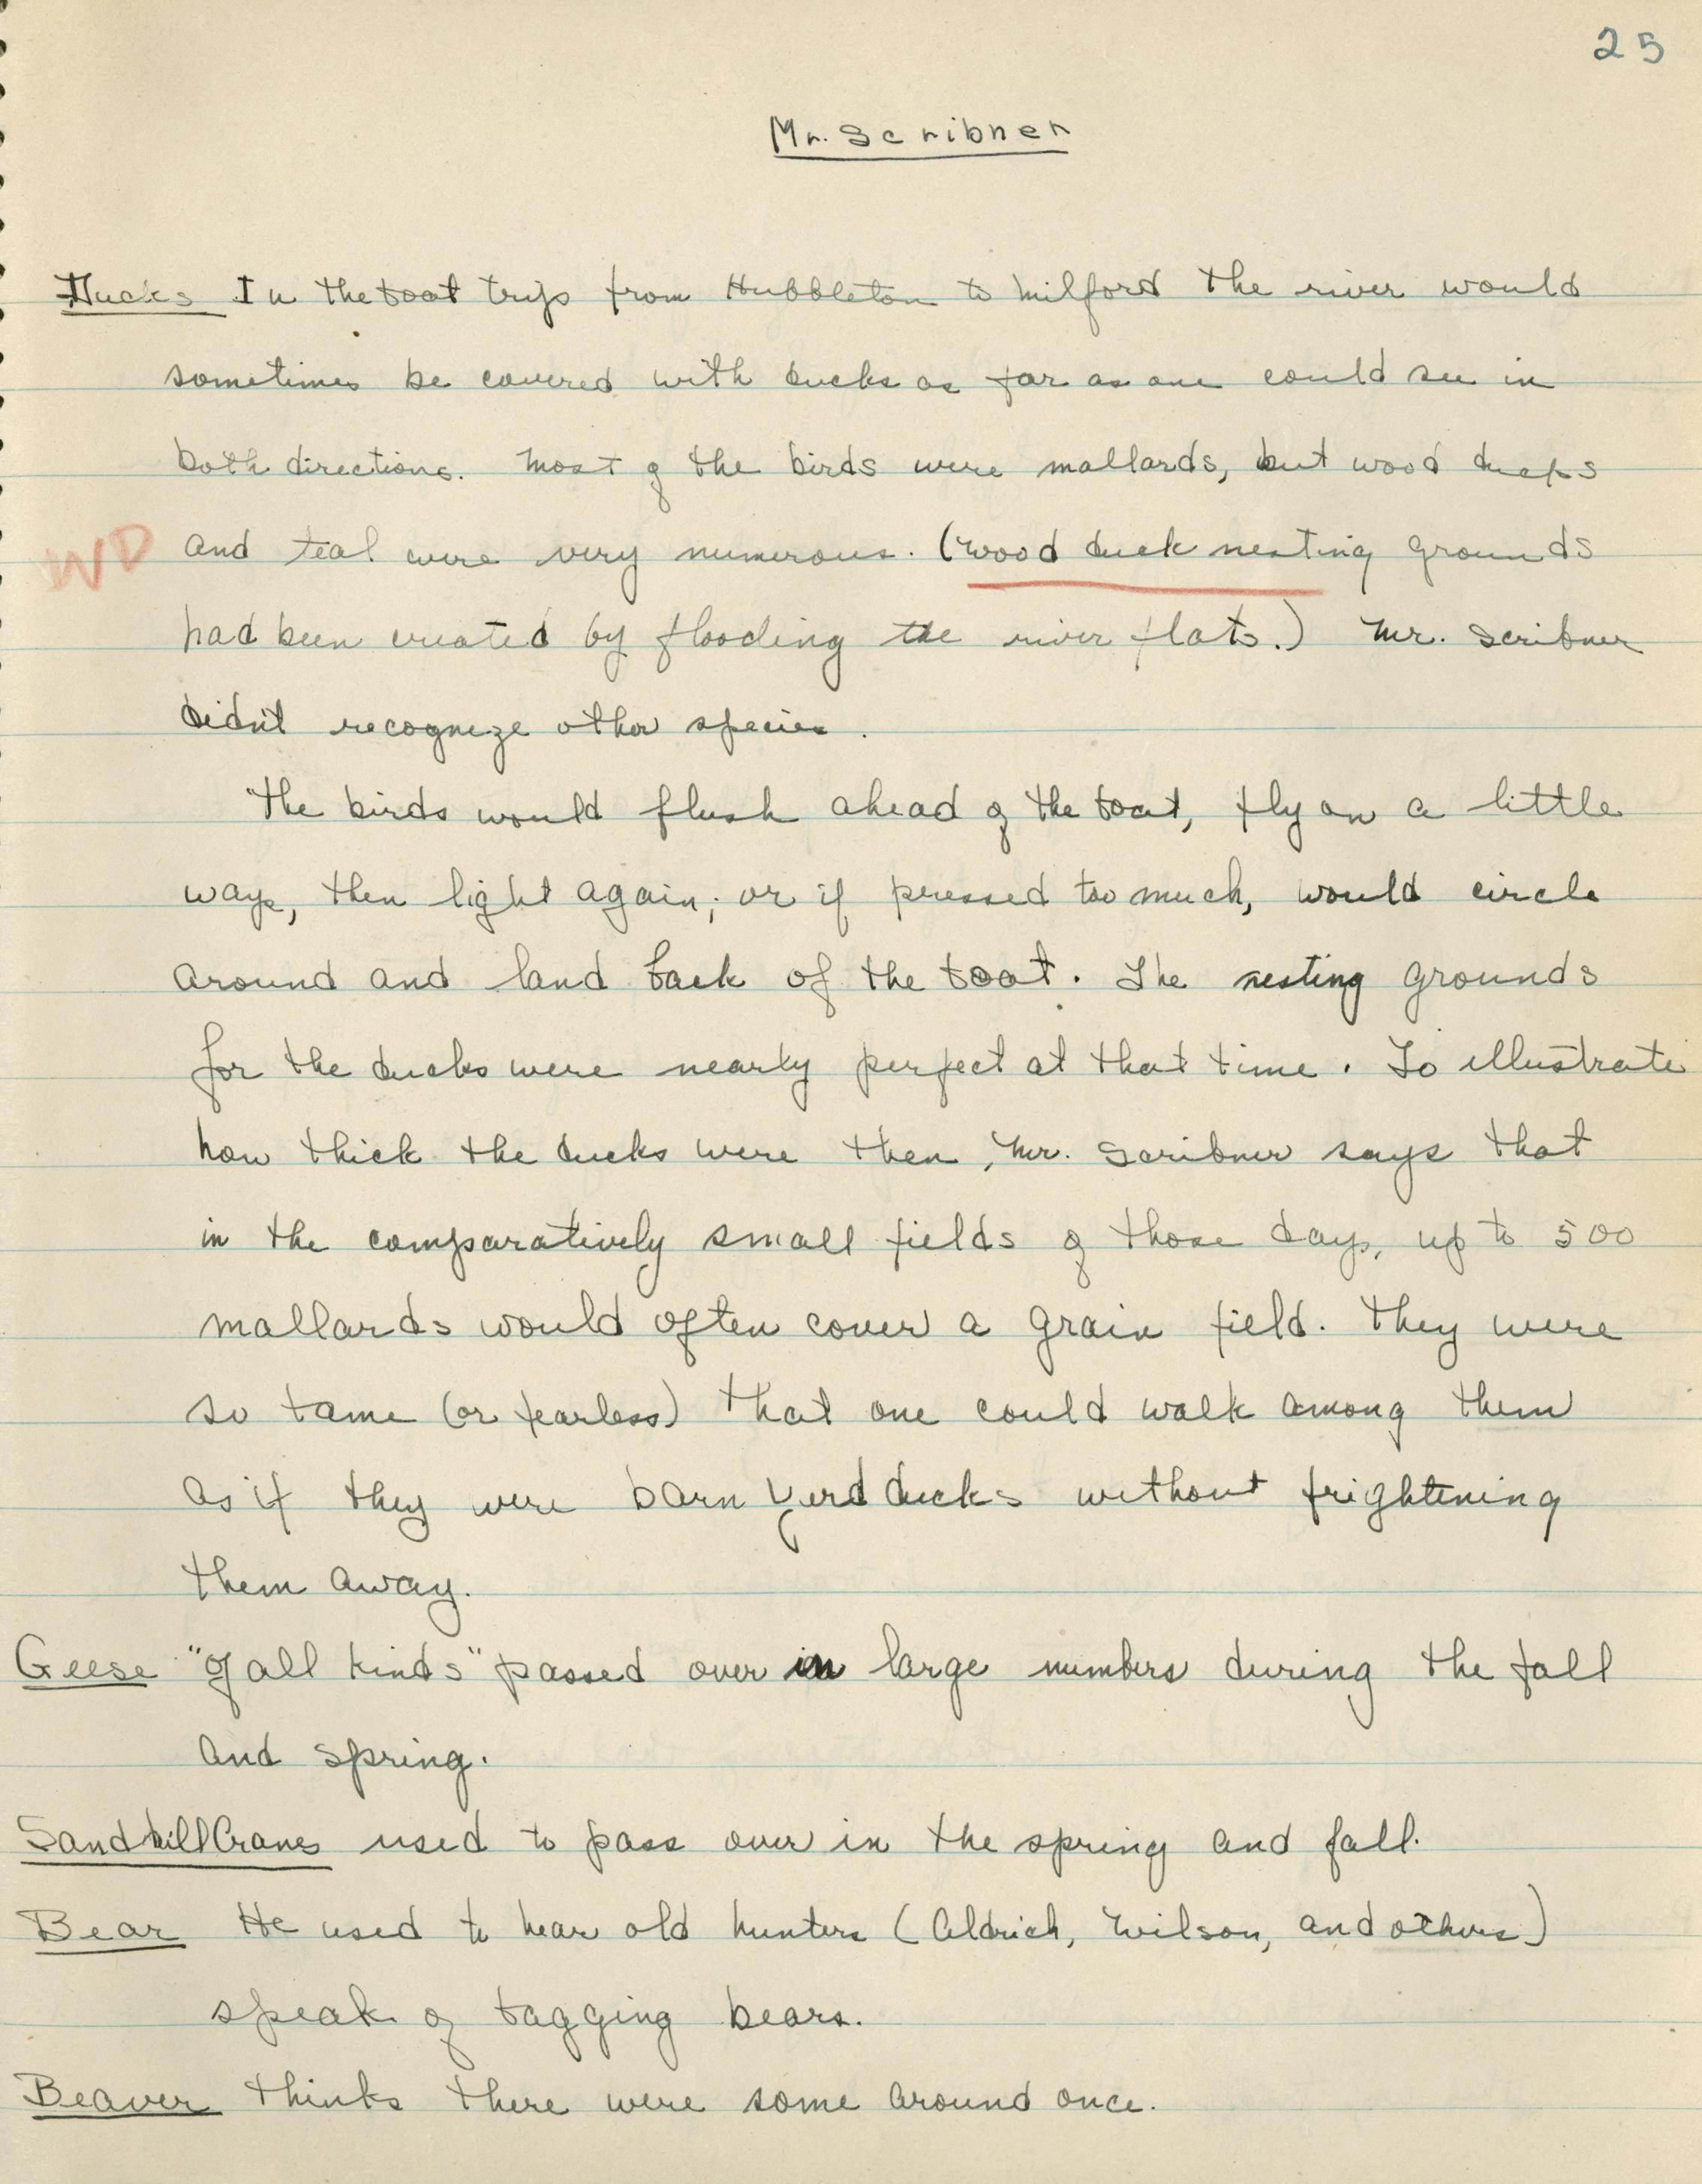 25
Mr. Scribner
Ducks In the boat trips from Hubbleton to Milford the river would
sometimes be covered with ducks as far as one could see in
both directions. Most of the birds were mallards, but wood ducks
WD and teal were very numerous. (wood duck nesting grounds
had been created by flooding the river flats.) Mr. Scribner
didn't recognize other species.
The birds would flush ahead of the boat, fly on a little
ways, then light again; or if pressed too much, would circle
around and land back of the boat. The nesting grounds
for the ducks were nearly perfect at that time. To illustrate
how thick the ducks were then, Mr. Scribner says that
in the comparatively small fields of those days, up to 500
mallards would often cover a grain field. They were
so tame (or fearless) that one could walk among them
as if they were barn yard ducks without frightening
them away.
Geese "of all kinds" passed over in large numbers during the fall
and spring.
Sandhill Cranes used to pass over in the spring and fall.
Bear He used to hear old hunters (Aldrich, Wilson, and others)
speak of bagging bears.
Beaver Thinks there were some around once.